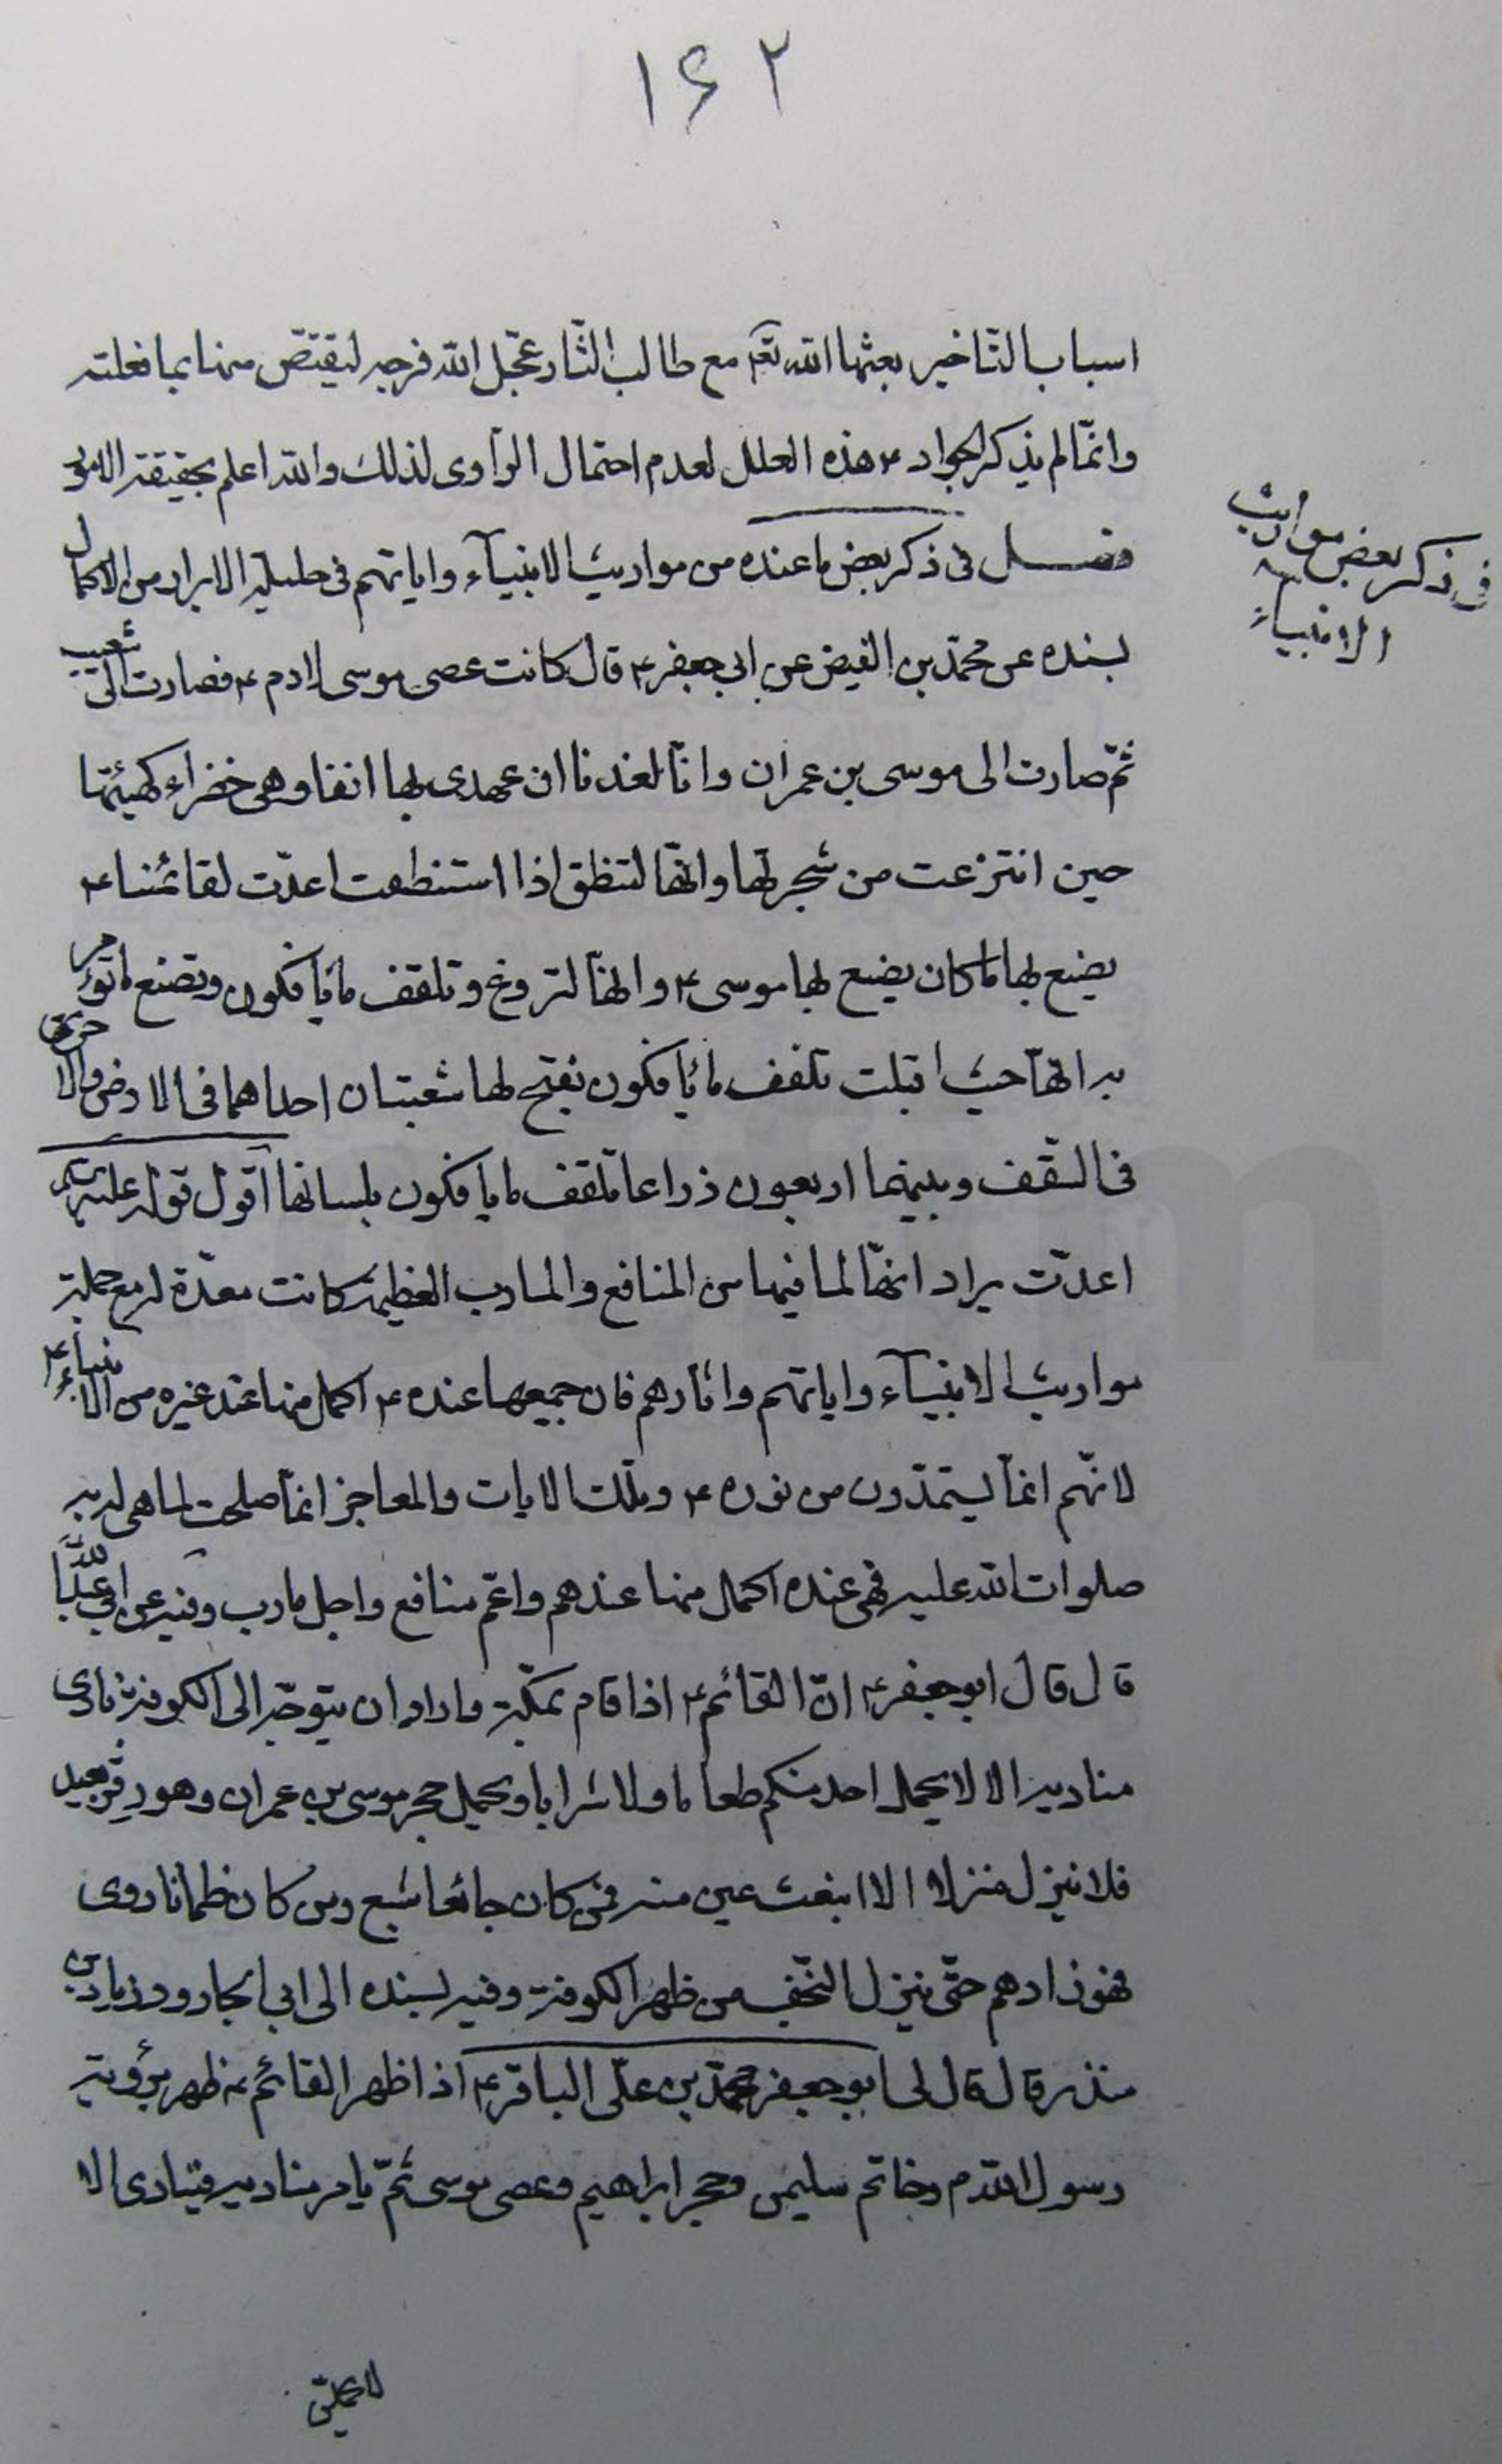 ١۶٢
اسباب التّاخير بعثها الله تعہ مع طالب الثّار عجّل الله فرجه ليقتصّ منها بما فعلته
وانّما لم يذكر الجواد ۴ هذه العلل لعدم احتمال الرّاوى لذلك والله اعلم بحقيقة الامور
فصل فى ذكر بعض ما عنده من مواريث الانبيآء واياتهم فى حلية الابرار من الاكمال
بسنده عن محمّد بن الفيض عن ابى جعفر ۴ قال كانت عصى موسى لادم ۴ فصارت الى شعيب
ثمّ صارت الى موسى بن عمران وانّا لعندنا ان عهدى بها انفا وهى خضراء كهيئتها
حين انتزعت من شجرتها وانّها لتنطق اذا استنطقت اعدّت لقائمنا ۴
يضع بها ما كان يضع بها موسى ۴ وانّها لتروغ وتلقف ما يأفكون وتصنع ما تؤمر
به انّها حيث اقبلت تلقف ما يأفكون يفتح لها شعبتان احداهما فى الارض والاخرى
فى السّقف وبينهما اربعون ذراعا تلقف ما يأفكون بلسانها اقول قوله عليه السلام
اعدّت يراد انّها لما فيها من المنافع والمارب العظيمة كانت معدّة له مع جملة
مواريث الانبيآء واياتهم واثارهم فان جميعها عنده ۴ اكمل منها عند غيره من الانبياء ۴
لانّهم انمّا يستمدّون من نوره ۴ وتلك الايات والمعاجز انمّا صلحت لما هى له به
صلوات الله عليه فهى عنده اكمل منها عندهم واعّم منافع واجل مارب وفيه عن ابى عبد اللّه
قال قال ابو جعفر ۴ انّ القائم ۴ اذا قام بمكّة واراد ان يتوجّه الى الكوفة نادى
مناديه الا لا يحمل احد منكم طعاما ولا شرابا ويحمل حجر موسى بن عمران وهو وقر بعير
فلا نيزل منزلا الا انبعث عين منه فمن كان جائعا شبع ومن كان ظمانا روى
فهو زادهم حتّى نيزل النّجف من ظهر الكوفة وفيه بسنده الى ابى الجارود زياد بن
منذر قال قال لى ابو جعفر محمّد بن علّى الباقر ۴ اذا ظهر القائم ۴ ظهر برؤية
رسول الله م وخاتم سليمن وحجر ابراهيم وعصى موسى ثمّ يامر مناديه فينادى الا
فى ذكر بعض مواريث
الانبياء
لا يحملنّ